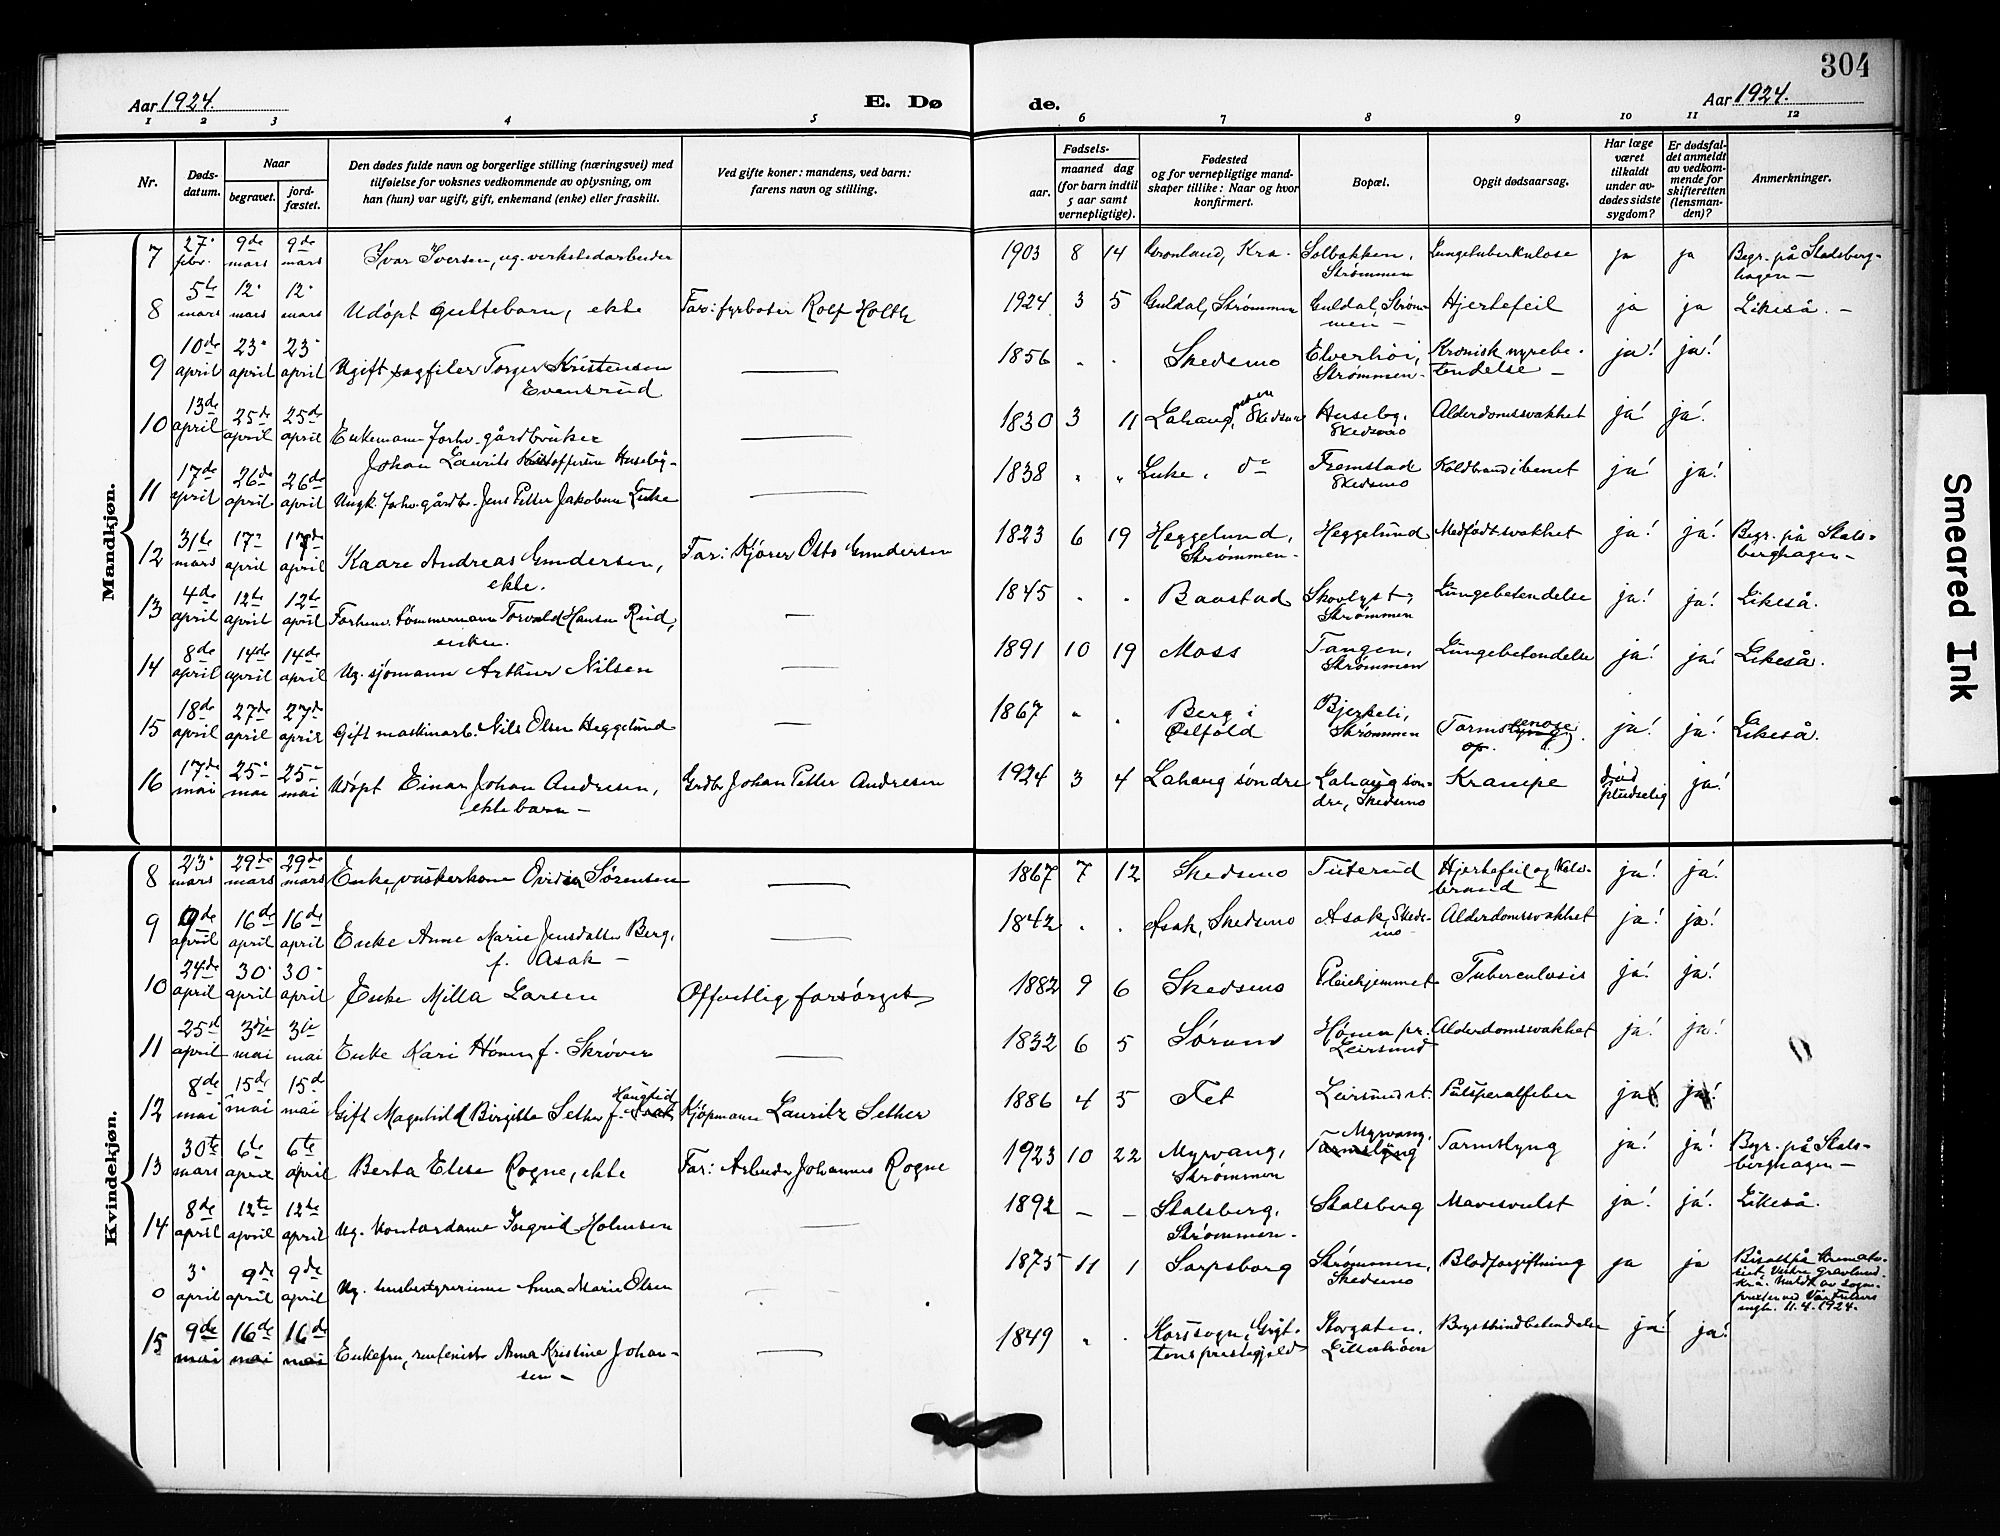 304
Aar 1924.
E. Dø
de.
Aar 1924.
1 2 3 4 5 6 7 8 9 10 11 12
Nr.
Døds-
datum.
Naar
begravet.
jord-
fæstet.
Den dødes fulde navn og borgerlige stilling (næringsvei) med
tilføielse for voksnes vedkommende av oplysning, om
han (hun) var ugift, gift, enkemand (enke) eller fraskilt.
Ved gifte koner: mandens, ved barn:
farens navn og stilling.
Fødsels-
aar.
maaned dag
(for barn indtil
5 aar samt
vernepligtige).
Fødested
og for vernepligtige mand-
skaper tillike: Naar og hvor
konfirmert.
Bopæl.
Opgit dødsaarsag.
Har læge
været
tilkaldt
under av-
dødes sidste
sygdom?
Er dødsfal-
det anmeldt
av vedkom-
mende for
skifteretten
(lensman-
den)?
Anmerkninger.
Mandkjøn.
7 27. febr. 9de mars 9de mars Ivar Iversen, ug. verkstedarbeider 1903 8 14 Grønland, Kra. Solbakken, Strømmen Lungetuberkulose ja ja Begr. på Stalsberg-
hagen –
8 5te mars 12. mars 12. mars Udøpt guttebarn, ekte Far: fyrbøter Rolf Holth 1924 3 5 Guldal, Strømmen Guldal, Strøm-
men – Hjertefeil ja ja Likeså. –
9 10de april 23. april 23. april Ugift sagfiler Torger Kristensen
Evensrud — 1856 " . Skedsmo Elverhøi, Strømmen – Kronisk nyrebe-
tendelse – ja! ja!
10 13de april 25de april 25de april Enkemann forhv. gårdbruker
Johan Laurits Kristoffersen Huseby – — 1830 3 11 Lahaug, Skedsmo Huseby, Skedsmo Alderdomssvakhet ja! ja!
11 17de april 26de april 26de april Ungk. forhv. gårdbr. Jens Petter Jakobsen Luke — 1838 " " Luke, do Fremstad Skedsmo Koldbrand i benet ja! ja!
12 31te mars 17. april 17de april Kaare Andreas Gundersen,
ekte. Far: Kjører Otto Gundersen 1823 6 19 Heggelund, Strømmen – Heggelund Medfødt svakhet ja! ja! Begr. på Stals-
berghagen –
13 4de april 12te april 12te april Forhenv. tømmermann Torvald Hansen Rud,
enkem. — 1845 . . Baastad Skovlyst, Strømmen Lungebetendelse ja! ja! Likeså.
14 8de april 14de april 14de april Ug. sjømann Arthur Nilsen — 1891 10 19 Moss Tangen, Strømmen Lungebetendelse ja! ja! Likeså.
15 18de april 27de april 27de april Gift maskinarb. Nils Olsen Heggelund — 1867 " . Berg i Østfold Bjerkeli, Strømmen Tarmstenose op. ja! ja! Likeså.
16 17de mai 25. mai 25. mai Udøpt Einar Johan Andresen,
ekte barn – Grdbr Johan Petter Andresen 1924 3 4 Lahaug søndre Lahaug søn-
dre, Skedsmo Krampe død ptudselig ja!
Kvindekjøn.
8 23. mars 29de mars 29de mars Enke, vaskerkone Ovidia Sørensen — 1867 7 12 Skedsmo Tuterud Hjertefeil og Kold-
brand – ja! ja!
9 9de april 16de april 16de april Enke Anne Marie Jensdatter Berg,
f. Asak – — 1842 . . Asak, Skedsmo Asak, Skeds-
mo – Alderdomssvakhet ja! ja!
10 24de april 30. april 30. april Enke Milla Larsen Offentlig forsørget 1882 9 6 Skedsmo Pleiehjemmet Tuberculosis ja! ja!
11 25d april 3die mai 3die mai Enke Kari Hønen f. Skrøver — 1832 6 5 Sørum Hønen pr. Leirsund Alderdomssvakhet ja! ja!
12 8de mai 15de mai 15de mai Gift Magnhild Birgitte Sether f. Kjøpmann Lauritz Sether 1886 4 5 Fet Leirsund st. Putsperalfeber ja! ja!
13 30te mars 6te april 6te april Berta Elise Rogne, ekte Far: Arbeider Johannes Rogne 1923 10 22 Myrvang, Strømmen Myrvang, Tarmslyng Tarmslyng ja! ja! Begr. på Stals-
berghagen –
14 8de april 12te april 12te april Ug. kontordame Ingrid Holmsen — 1892 – – Stalsberg, Strømmen – Stalsberg Mavesvulst ja! ja! Likeså.
0 3. april 9de april 9de april Ug. husbestyrerinne Anna Marie Olsen 1875 11 1 Sarpsborg Strømmen, Skedsmo Blodforgiftning ja ja Bisatt på Kremato-
riet, Vestre gravlund.
Kra. Meldt av sogne-
prest ved Vår Frelsers
mgh. 11.4.1924.
15 9de mai 16de mai 16de mai Enkefru, rentenist Anna Kristine Johan-
sen – — 1849 " . Korssogn, Gryt-
tens prestegjeld Storgaten, Lillestrøm Brysthindbetendelse ja! ja!
Smeared Ink